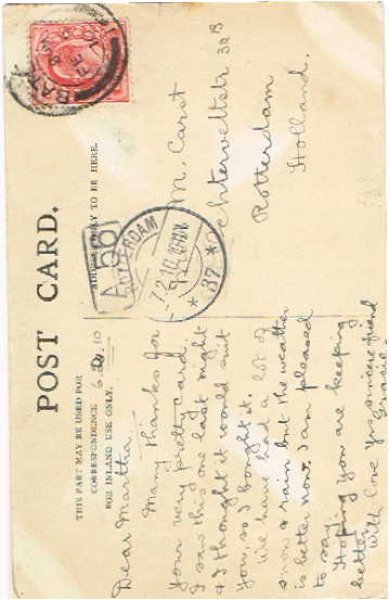 POST CARD.
THIS PART MAY BE USED FOR
CORRESPONDENCE
FOR INLAND USE ONLY.
ADDRESS ONLY TO BE HERE.
6.2.10
Dear Martha
Many thanks for
your very pretty card.
I saw this one last night
& I thought it would suit
you, so I bought it.
We have had a lot of
snow & rain but the weather
is better now. I am pleased
to say.
Hoping you are keeping
better.
With love Yr sincere friend
M. Carst
32 B
Rotterdam
Holland.
BATH
A 56
ROTTERDAM
7.2.10
* 37 *